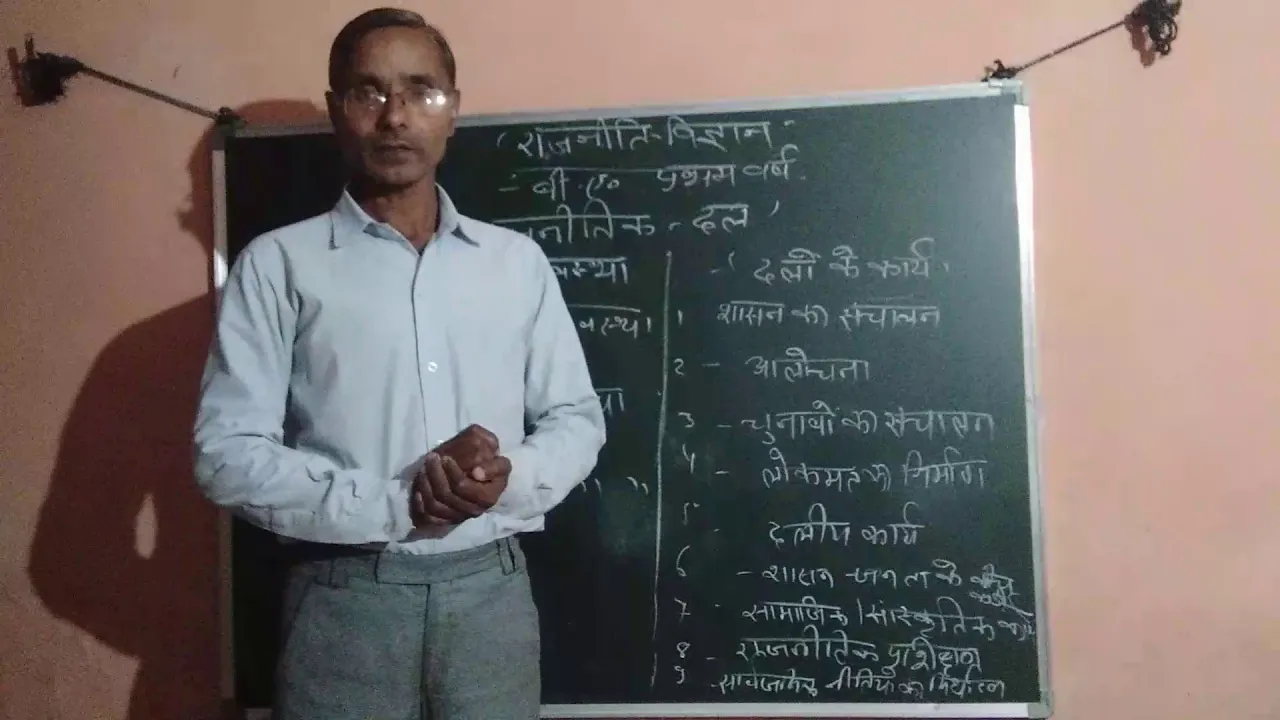 " राजनीति-विज्ञान "
- बी.ए० प्रथम वर्ष.
नीतिक - दल '
वस्था
वस्था।
- ' दलों के कार्य '
1 शासन का संचालन
2 - आलोचना
3 - चुनावों का संचालन
4 - लोकमत का निर्माण
5 - दलीय कार्य
6 - शासन -जनता के बीच
7 - सामाजिक / सांस्कृतिक कार्य
8 - राजनीतिक प्रशिक्षण
9 - सार्वजनिक नीतियों का निर्धारण